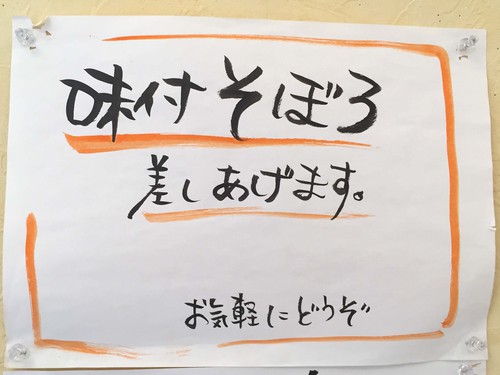 味付そぼろ
差しあげます。
お気軽にどうぞ